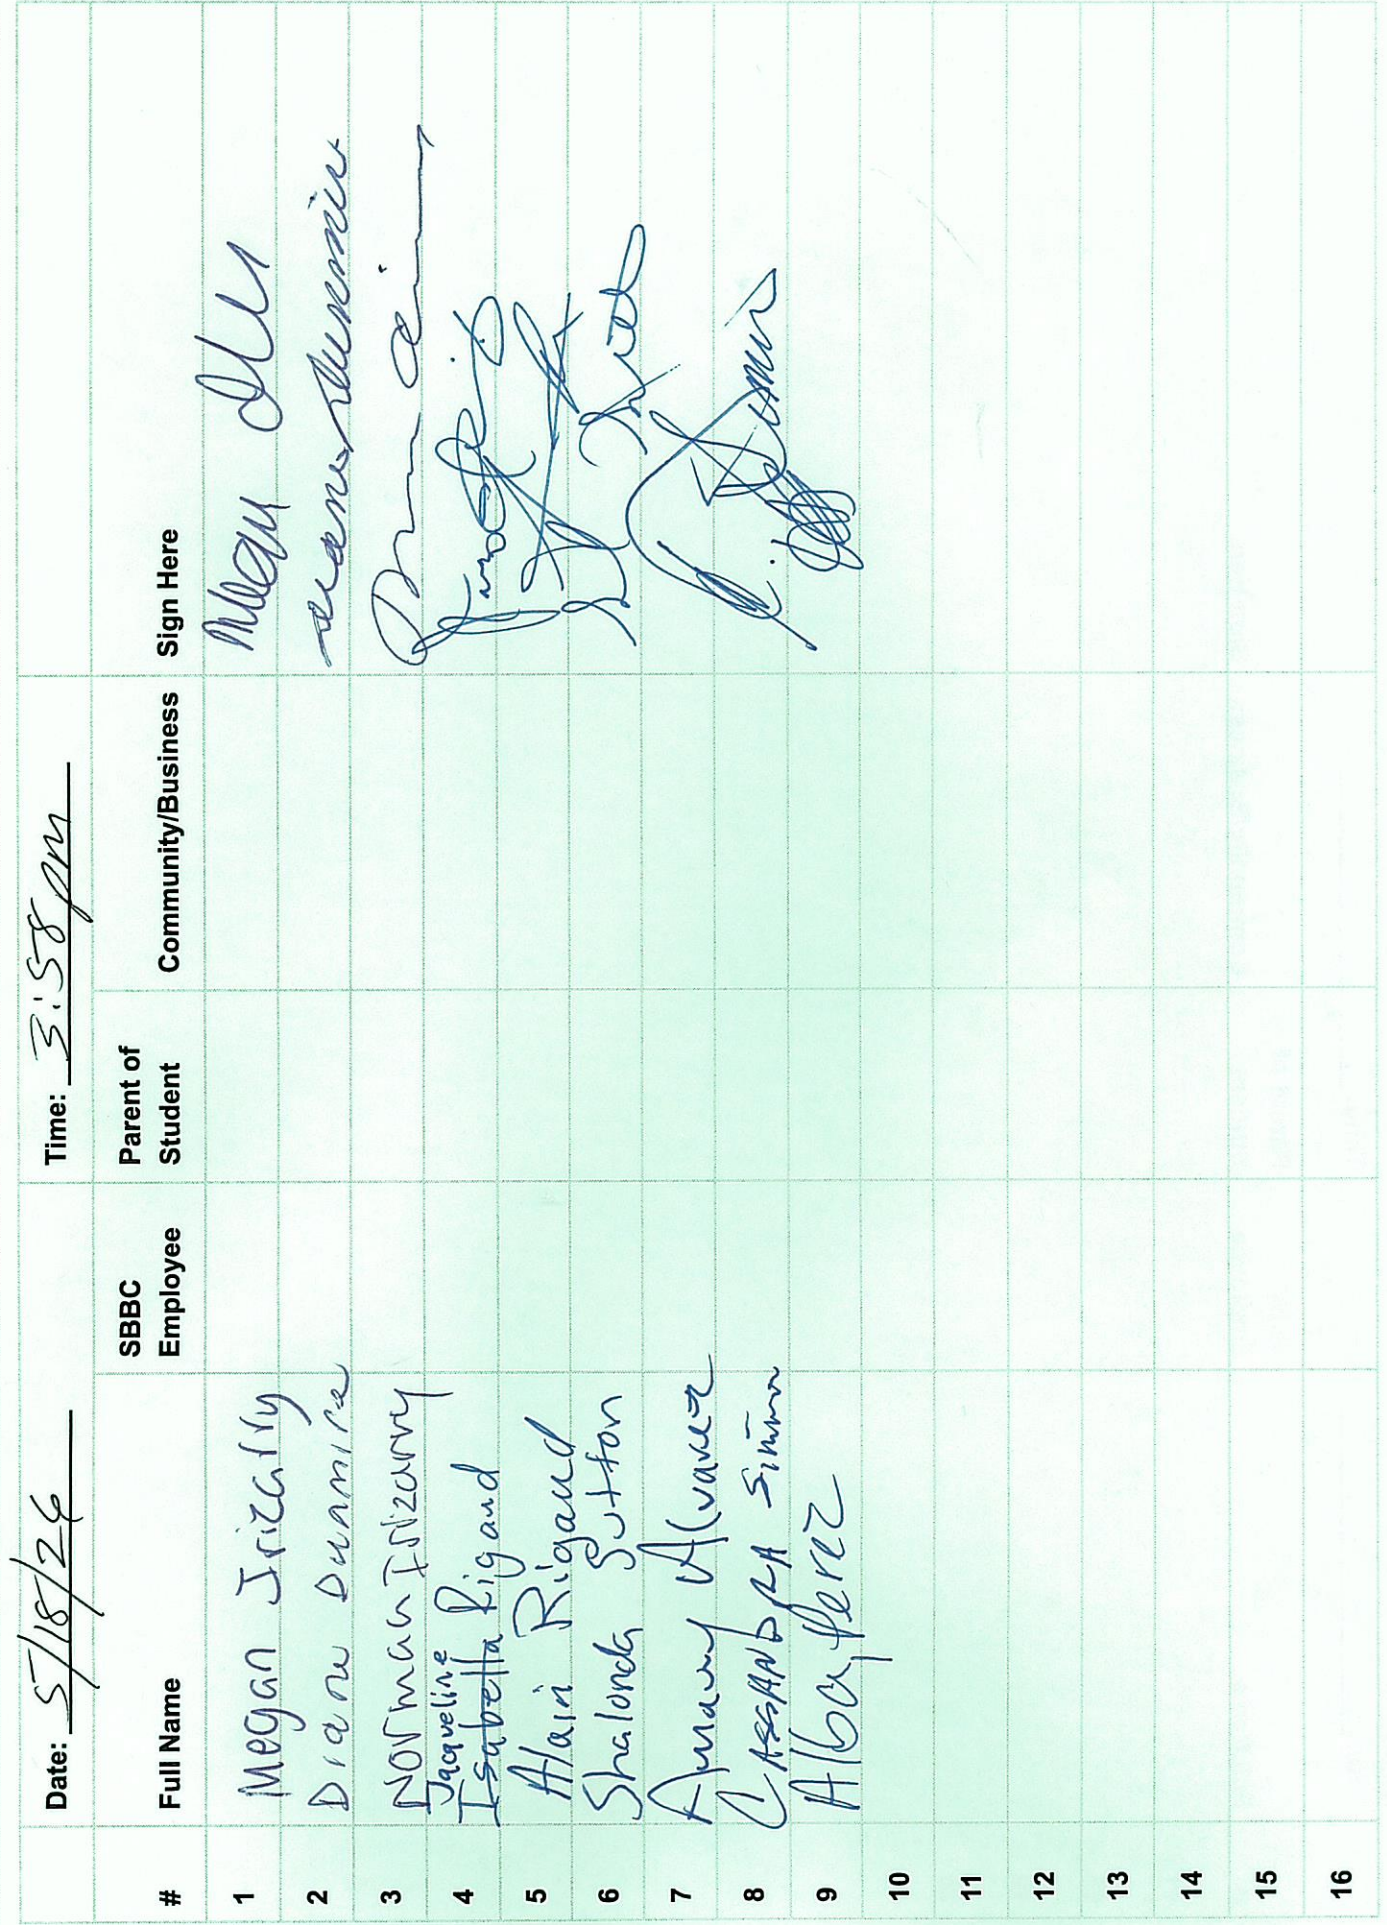 Date: 5/18/26 Time: 3:58 pm
# Full Name SBBC Employee Parent of Student Community/Business Sign Here
1 Megan Irizarry Megan
2 Diane Dunmire Diane Dunmire
3 Norman Irizarry
4 Jaqueline Isabella Rigaud
5 Alain Rigaud
6 Shalonda Sutton
7 Amaury Alvarez
8 CASSANDRA Simon
9 Alba Perez
10
11
12
13
14
15
16